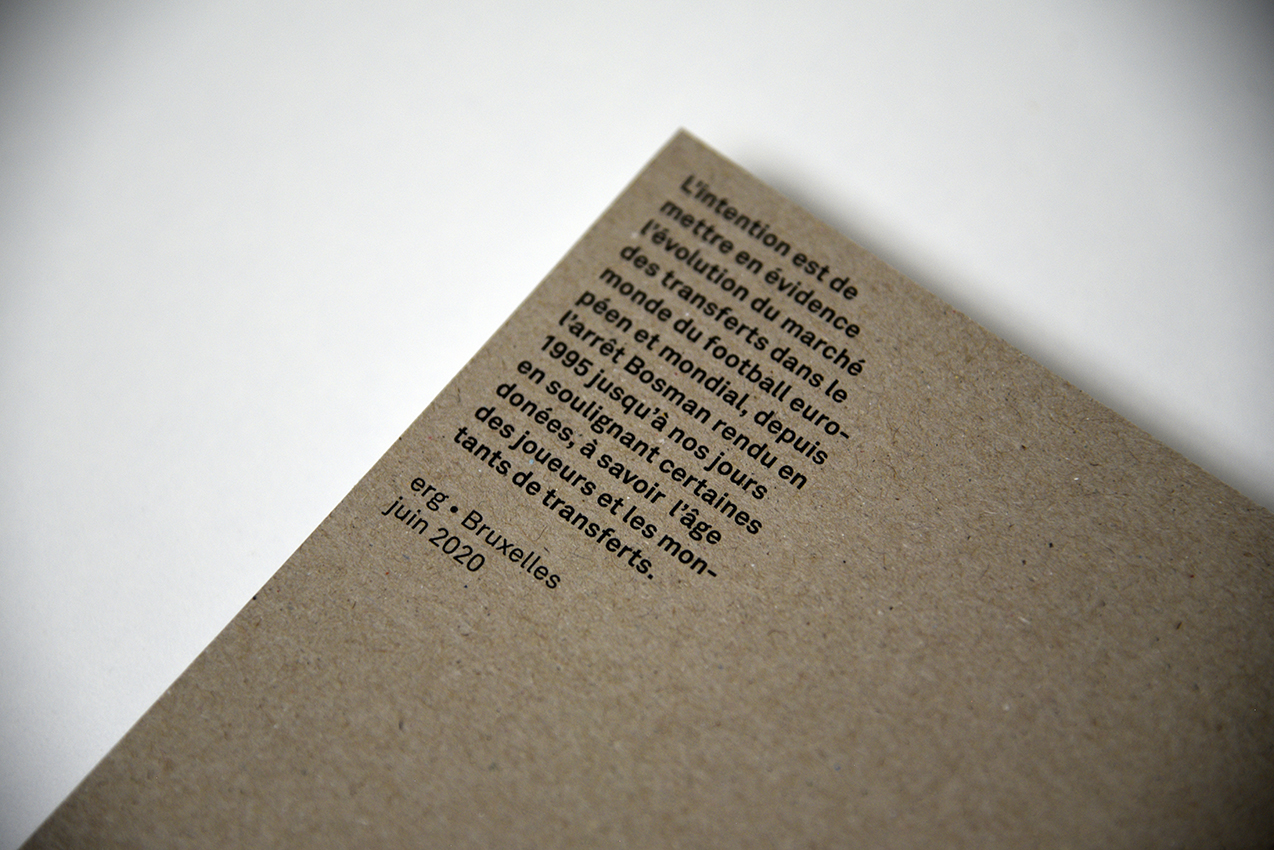 L'intention est de
mettre en évidence
l'évolution du marché
des transferts dans le
monde du football euro-
péen et mondial, depuis
l'arrêt Bosman rendu en
1995 jusqu'à nos jours
en soulignant certaines
donées, à savoir l'âge
des joueurs et les mon-
tants de transferts.
erg • Bruxelles
juin 2020